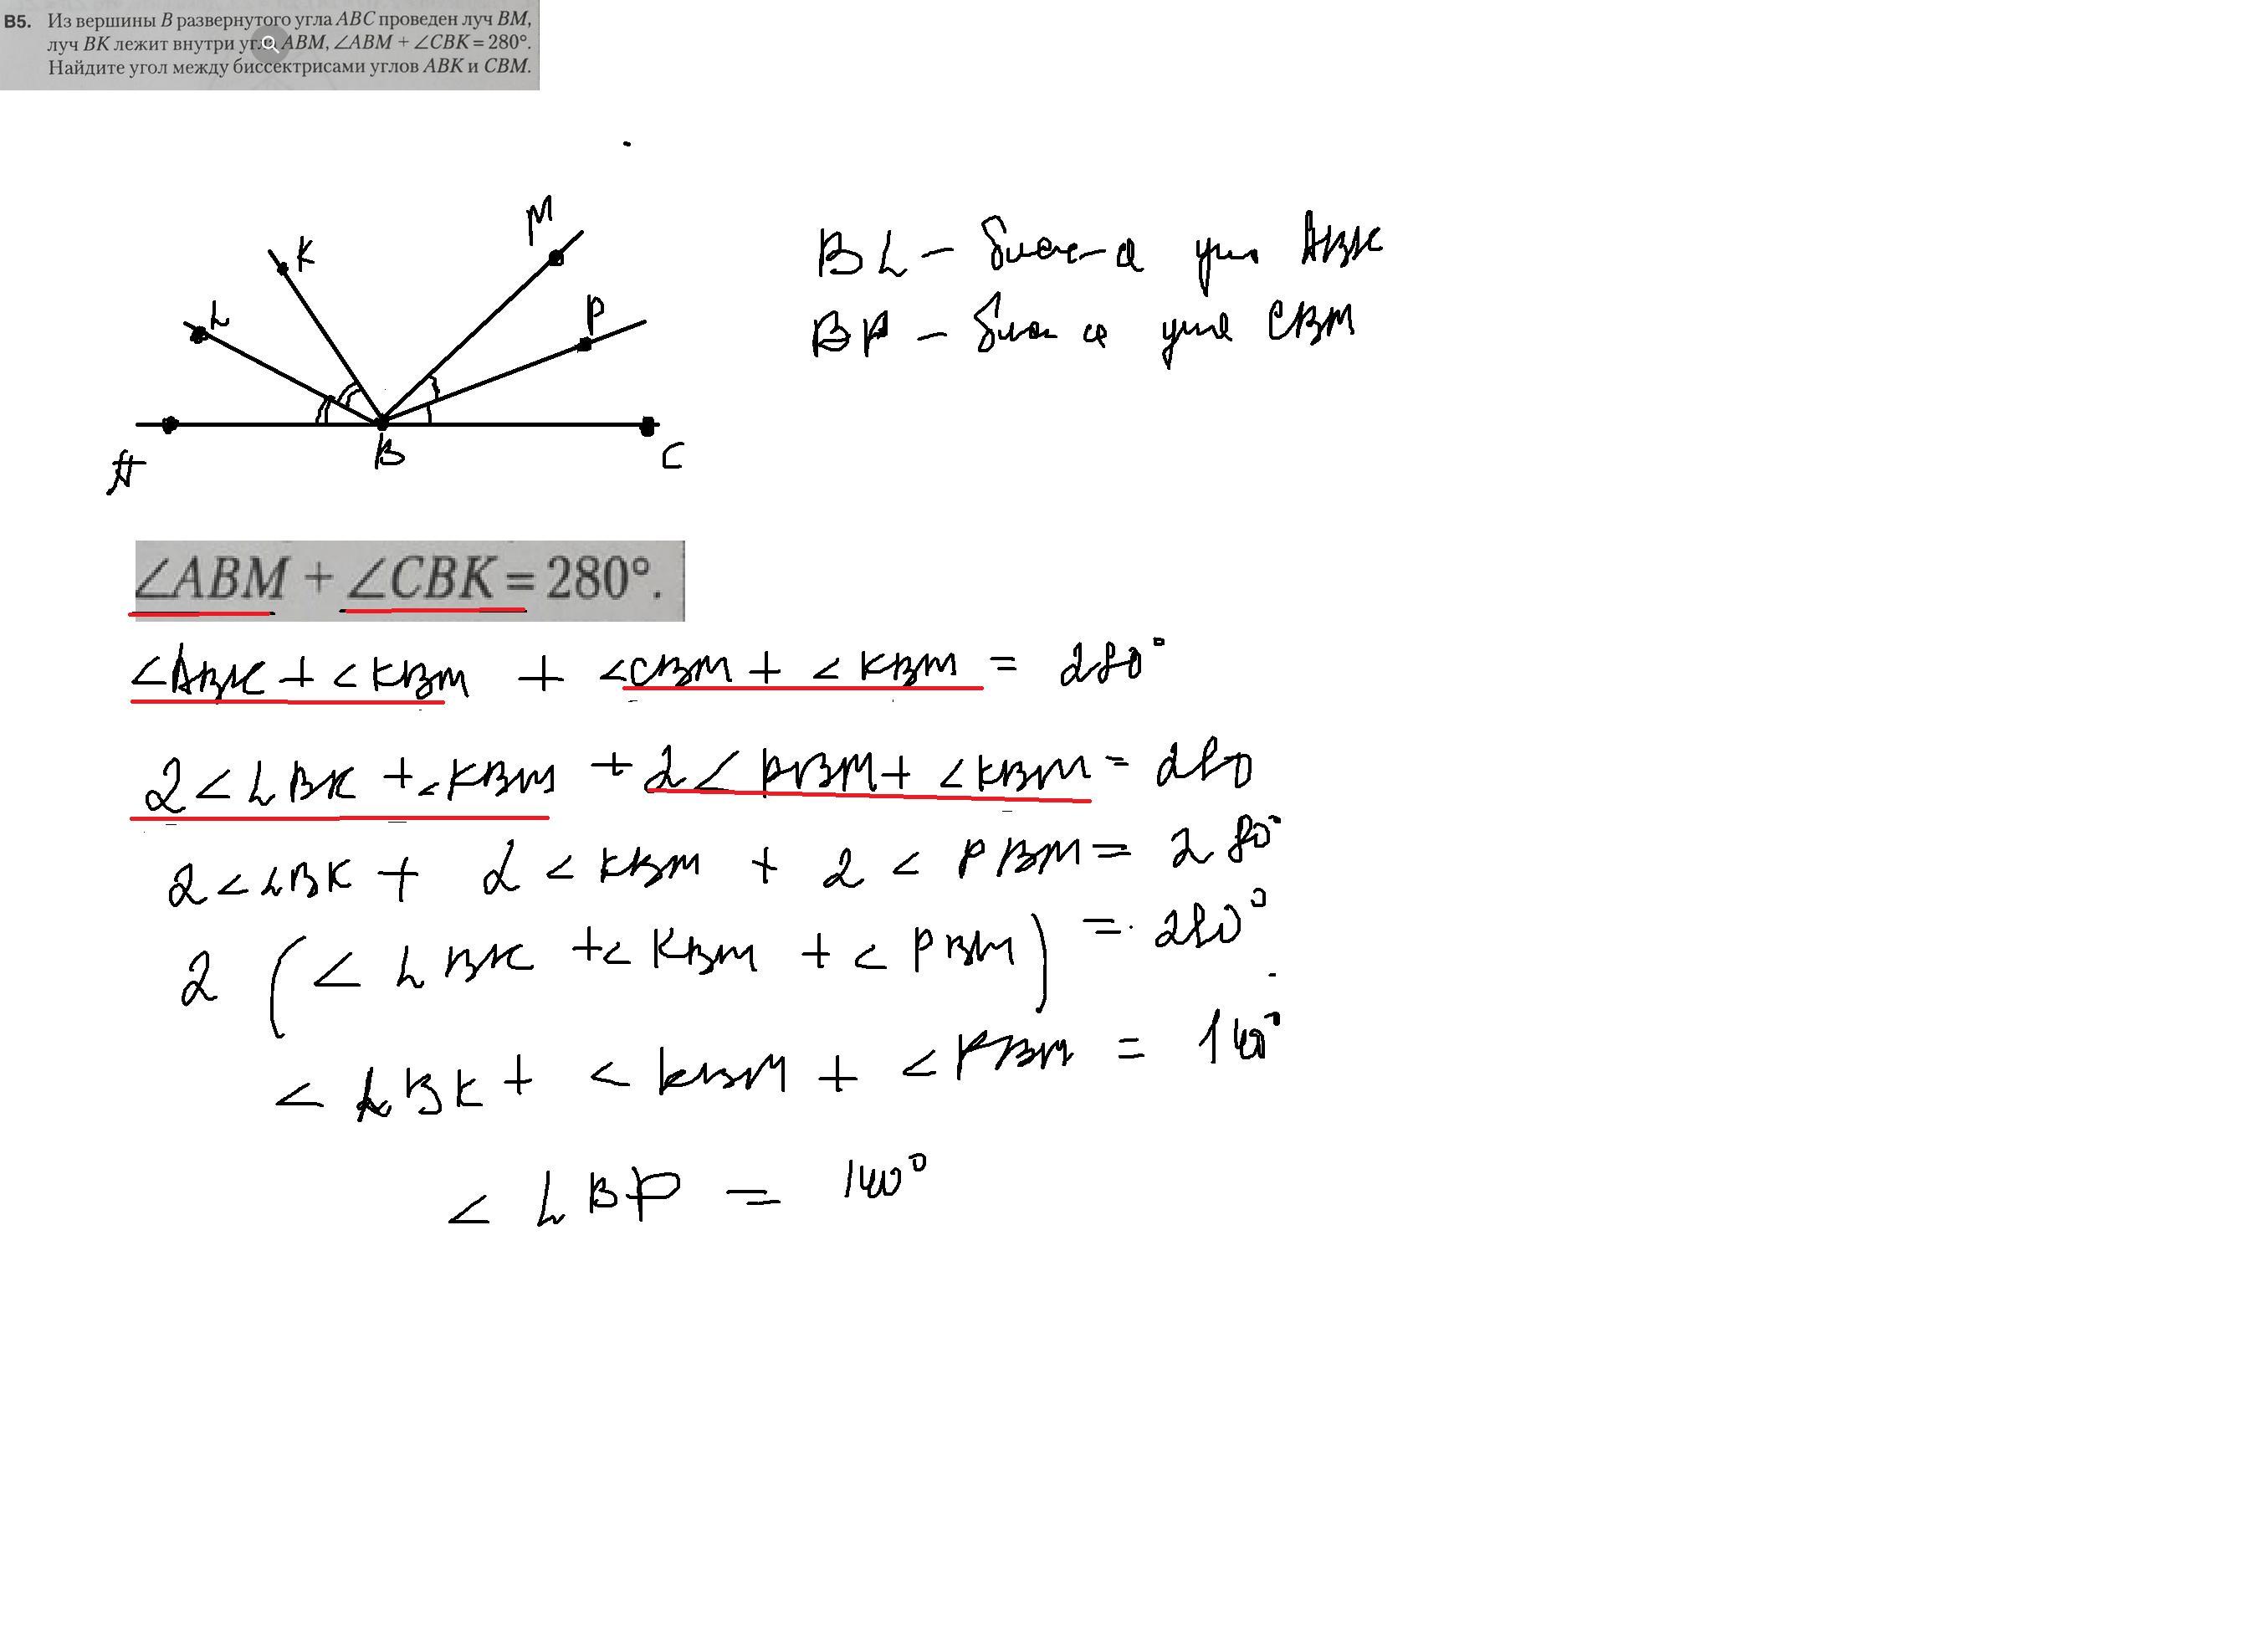 B5. Из вершины B развернутого угла ABC проведен луч BM,
луч BK лежит внутри угла ABM, ∠ABM + ∠CBK = 280°.
Найдите угол между биссектрисами углов ABK и CBM.
M
K
L
P
A
B
C
BL – бисс-а угла ABK
BP – бисс-а угла CBM
∠ABM + ∠CBK = 280°.
∠ABK + ∠KBM + ∠CBM + ∠KBM = 280°
2∠LBK + ∠KBM + 2∠PBM + ∠KBM = 280
2∠LBK + 2∠KBM + 2∠PBM = 280°
2(∠LBK + ∠KBM + ∠PBM) = 280°
∠LBK + ∠KBM + ∠PBM = 140°
∠LBP = 140°